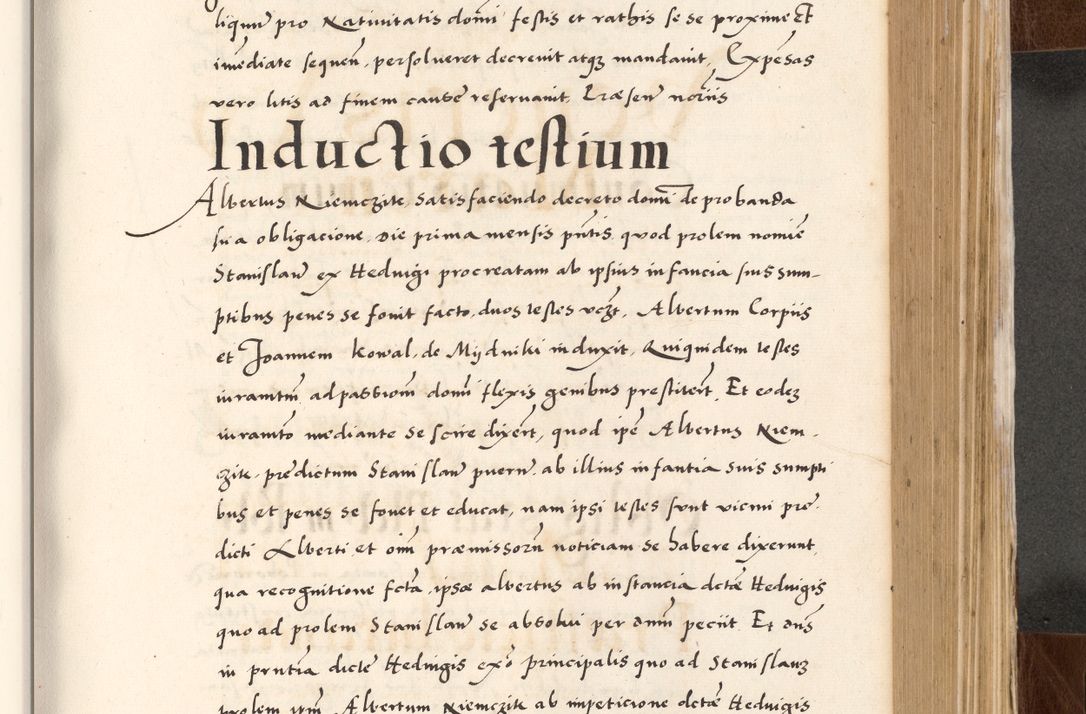 liqum̃ pro Nativitatis domĩ festis et rathis se se proxime et
im̃ediate sequeñ, persolveret decrevit atqʒ mandavit, Expẽsas
vero litis ad finem cause reservavit, Præseñ noriis
Inductio testium
Albertus Niemczite, satisfaciendo decreto domĩ de probanda
sua obligacione, die prima mensis pñtis, quod prolem nomĩe
Stanislaũ ex Hedvigi procreatam ab ipsius infancia suis sum-
ptibus penes se fovit facto, duos testes vcʒt, Albertum Corpiis
et Joannem Kowal, de Mydniki induxit, Quiquidem testes
iuramtm̃, ad passiom̃ domĩ flexis genibus prestiter̃t, Et eodeʒ
iuramto mediante se scire dixer̃t, quod ipẽ Albertus Niem-
zite predictum Stanislaũ pueru᷈, ab illius infantia suis sumpti
bus et penes se fovet et educat, nam ipsi testes sunt vicini pre-
dicti Alberti, et oĩm præmissoru᷈ noticiam se habere dixerunt,
qua recognitione fcta, ipse albertus ab instancia dctæ Hedvigis
quo ad prolem Stanislaũ se absolvi per dnm̃ peciit. Et dñs
in pñtia dicte Hedvigis ex̃o principalis quo ad Stanislauʒ
prolem ip̃m Albertum Niemczite ab impeticione dctæ Hedvigis